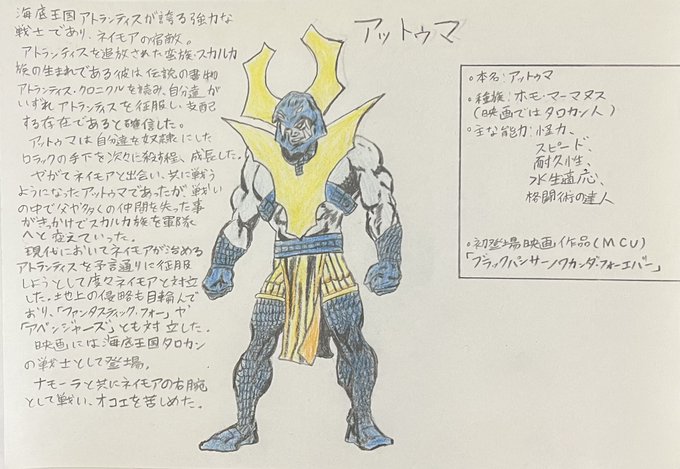 アットゥマ
海底王国アトランティスが誇る強力な
戦士であり、ネイモアの宿敵。
アトランティスを追放された蛮族・スカルカ
族の生まれである彼は伝説の書物
アトランティス・クロニクルを読み、自分達が
いずれアトランティスを征服し支配
する存在であると確信した。
アットゥマは自分達を奴隷にした
ロラックの手下を次々に殺す程、成長した。
やがてネイモアと出会い、共に戦う
ようになったアットゥマであったが戦い
の中で父や多くの仲間を失った事
がきっかけでスカルカ族を軍隊
へと変えていった。
現代においてネイモアが治める
アトランティスを予言通りに征服
しようとして度々ネイモアと対立
した。地上の侵略も目論んで
おり、「ファンタスティック・フォー」や
「アベンジャーズ」とも対立した。
映画には海底王国タロカン
の戦士として登場。
ナモーラと共にネイモアの右腕
として戦い、オコエを苦しめた。
・本名:アットゥマ
・種族:ホモ・マーマヌス
(映画ではタロカン人)
・主な能力:怪力、
スピード、
耐久性、
水生適応、
格闘術の達人
・初登場映画作品(MCU)
「ブラックパンサー/ワカンダ・フォーエバー」